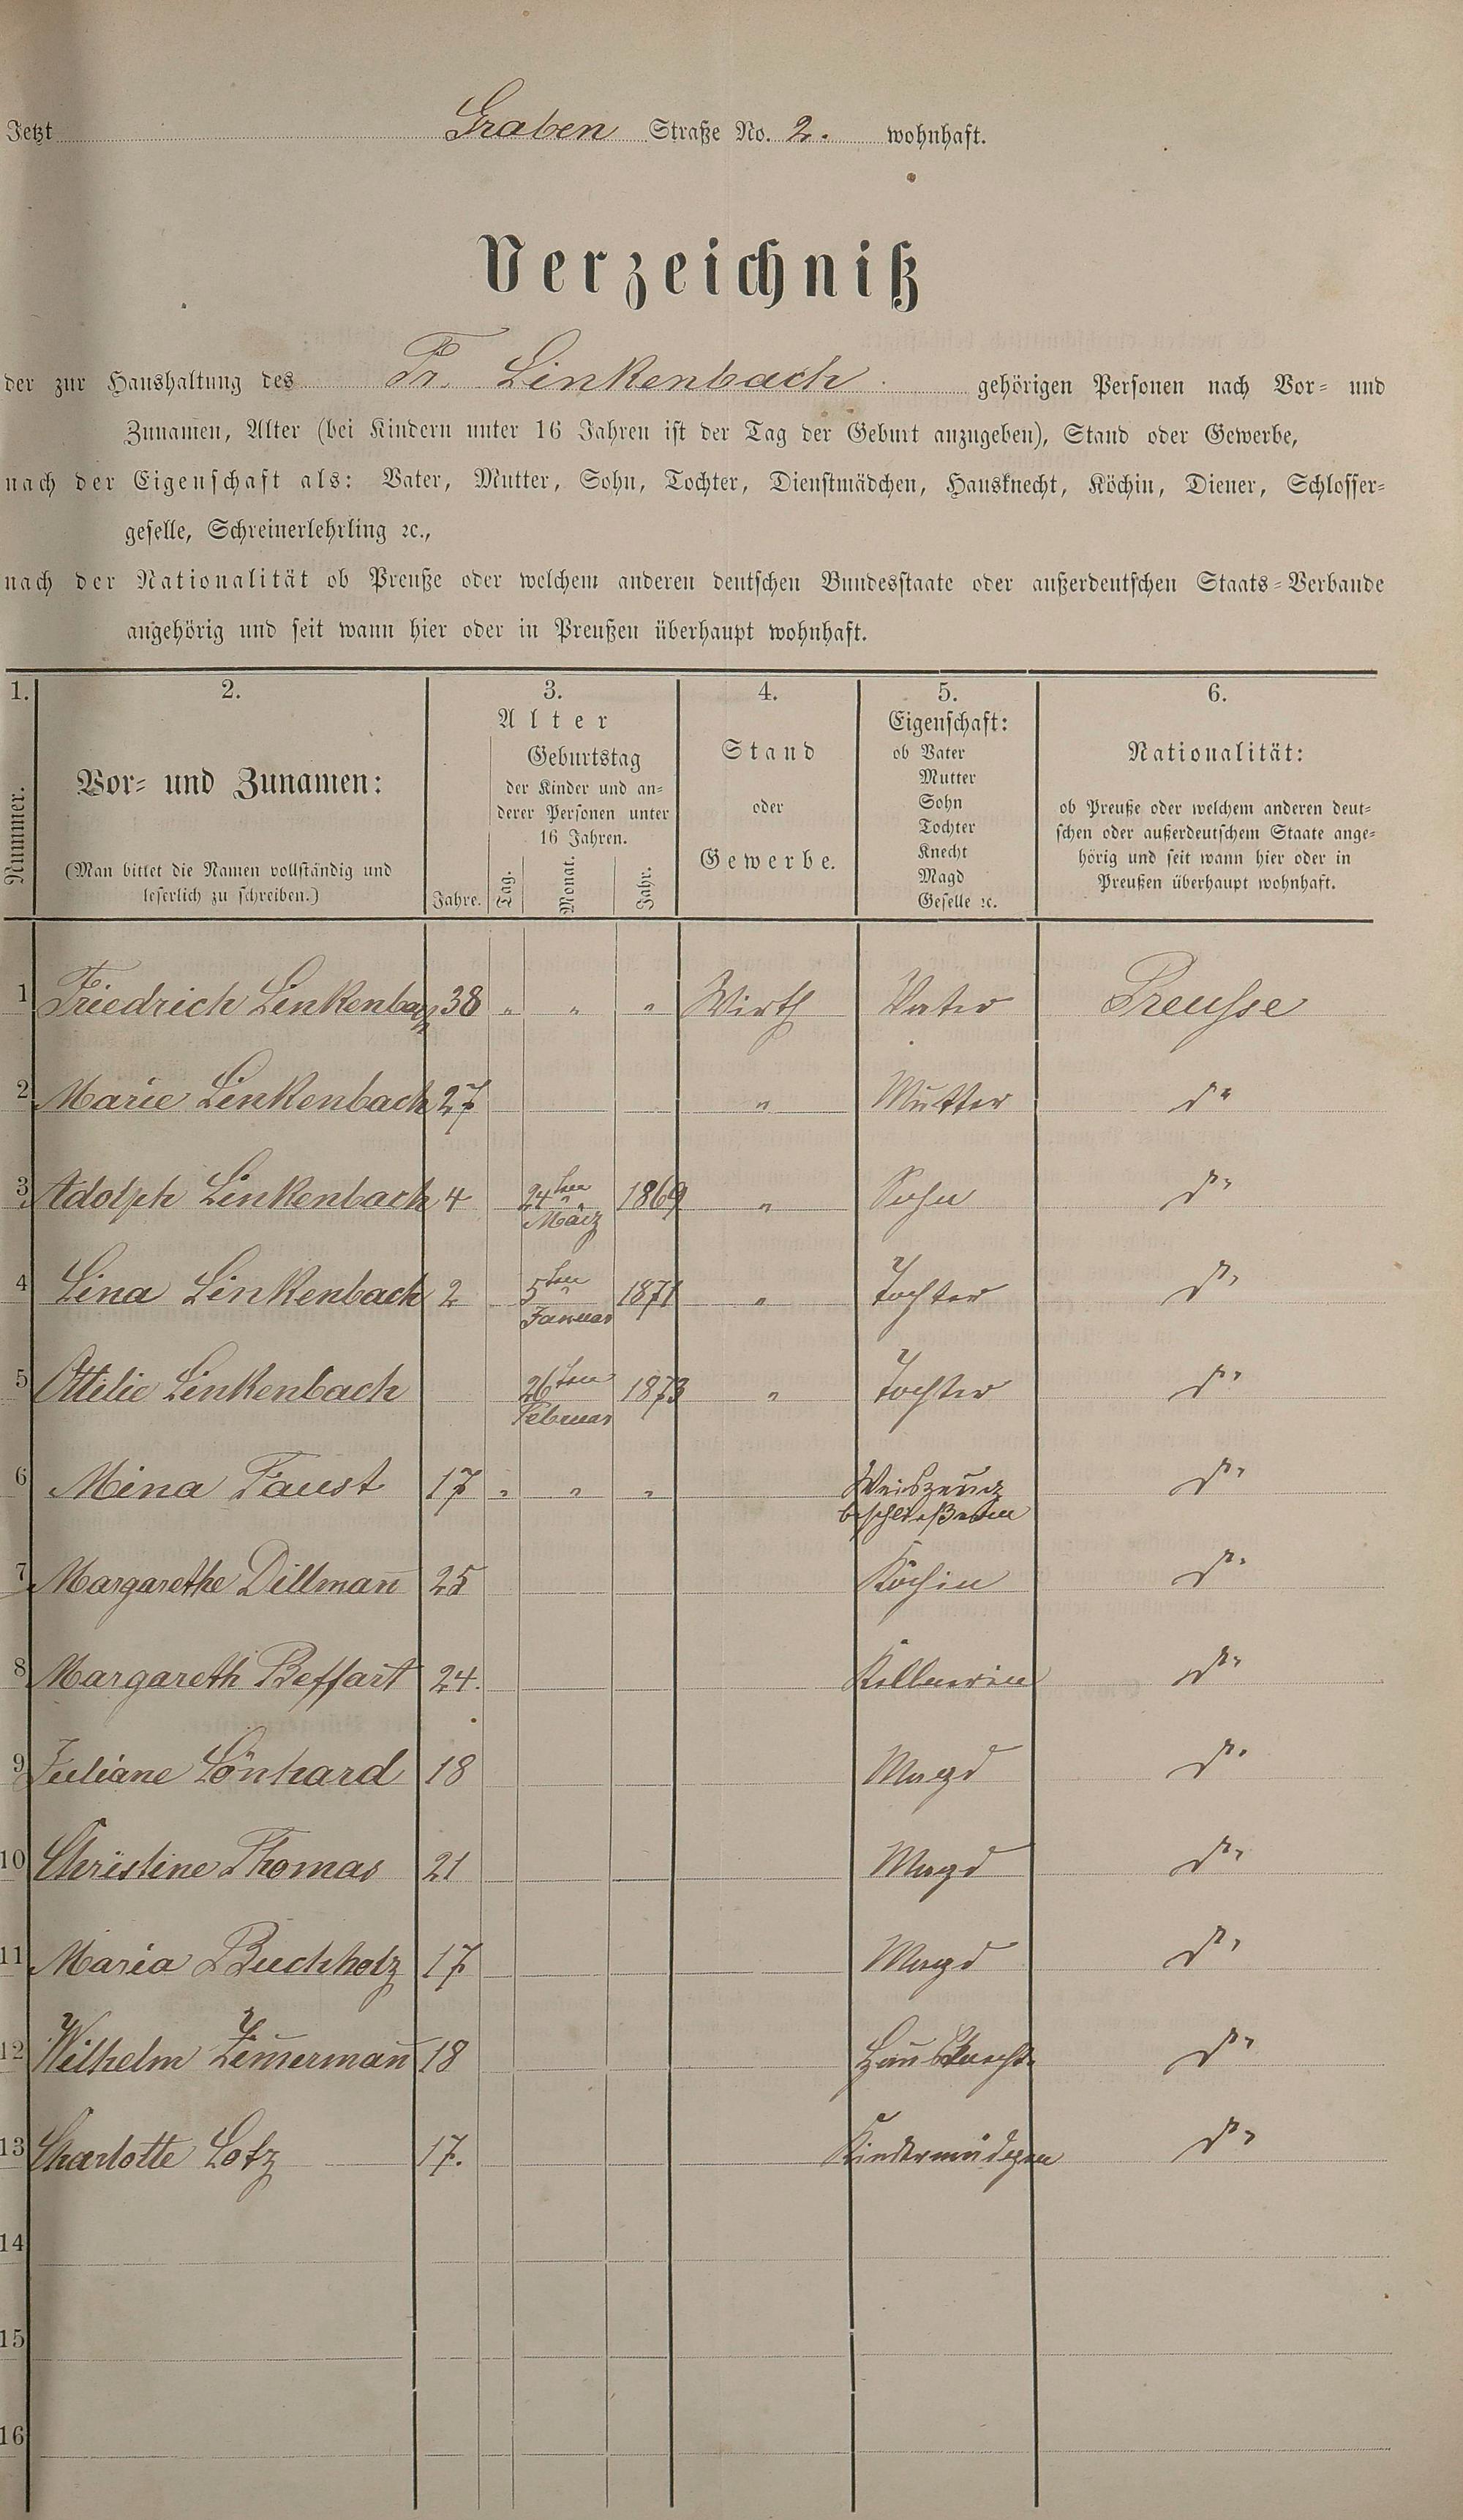 Jetzt Graben Straße No. 2. wohnhaft.
Verzeichniß
der zur Haushaltung des Fr. Linkenbach gehörigen Personen nach Vor- und
Zunamen, Alter (bei Kindern unter 16 Jahren ist der Tag der Geburt anzugeben), Stand oder Gewerbe,
nach der Eigenschaft als: Vater, Mutter, Sohn, Tochter, Dienstmädchen, Hausknecht, Köchin, Diener, Schlosser-
geselle, Schreinerlehrling ꝛc.,
nach der Nationalität ob Preuße oder welchem anderen deutschen Bundesstaate oder außerdeutschen Staats-Verbande
angehörig und seit wann hier oder in Preußen überhaupt wohnhaft.
1. 2. 3. 4. 5. 6.
Nummer.
Vor- und Zunamen:
(Man bittet die Namen vollständig und
leserlich zu schreiben.)
Alter
Jahre.
Geburtstag
der Kinder und an-
derer Personen unter
16 Jahren.
Tag. Monat. Jahr.
Stand
oder
Gewerbe.
Eigenschaft:
ob Vater
Mutter
Sohn
Tochter
Knecht
Magd
Geselle ꝛc.
Nationalität:
ob Preuße oder welchem anderen deut-
schen oder außerdeutschem Staate ange-
hörig und seit wann hier oder in
Preußen überhaupt wohnhaft.
1 Friedrich Linkenbach 38 " " " Wirth Vater Preusse
2 Marie Linkenbach 27 " Mutter do
3 Adolph Linkenbach 4 24ten März 1869 " Sohn do
4 Lina Linkenbach 2 5ten Januar 1871 " Tochter do
5 Ottilie Linkenbach 26ten Februar 1873 " Tochter do
6 Mina Faust 17 " " " Weiszeug do
beschließerin
7 Margarethe Dillman̄ 25 Köchin do
8 Margareth Beffart 24. Kellnerin do
9 Juliane Lönhard 18 Magd do
10 Christine Thomas 21 Magd do
11 Maria Buchholz 17 Magd do
12 Wilhelm Zim̄erman̄ 18 Hausknecht do
13 Charlotte Lotz 17. Kindermädgen do
14
15
16